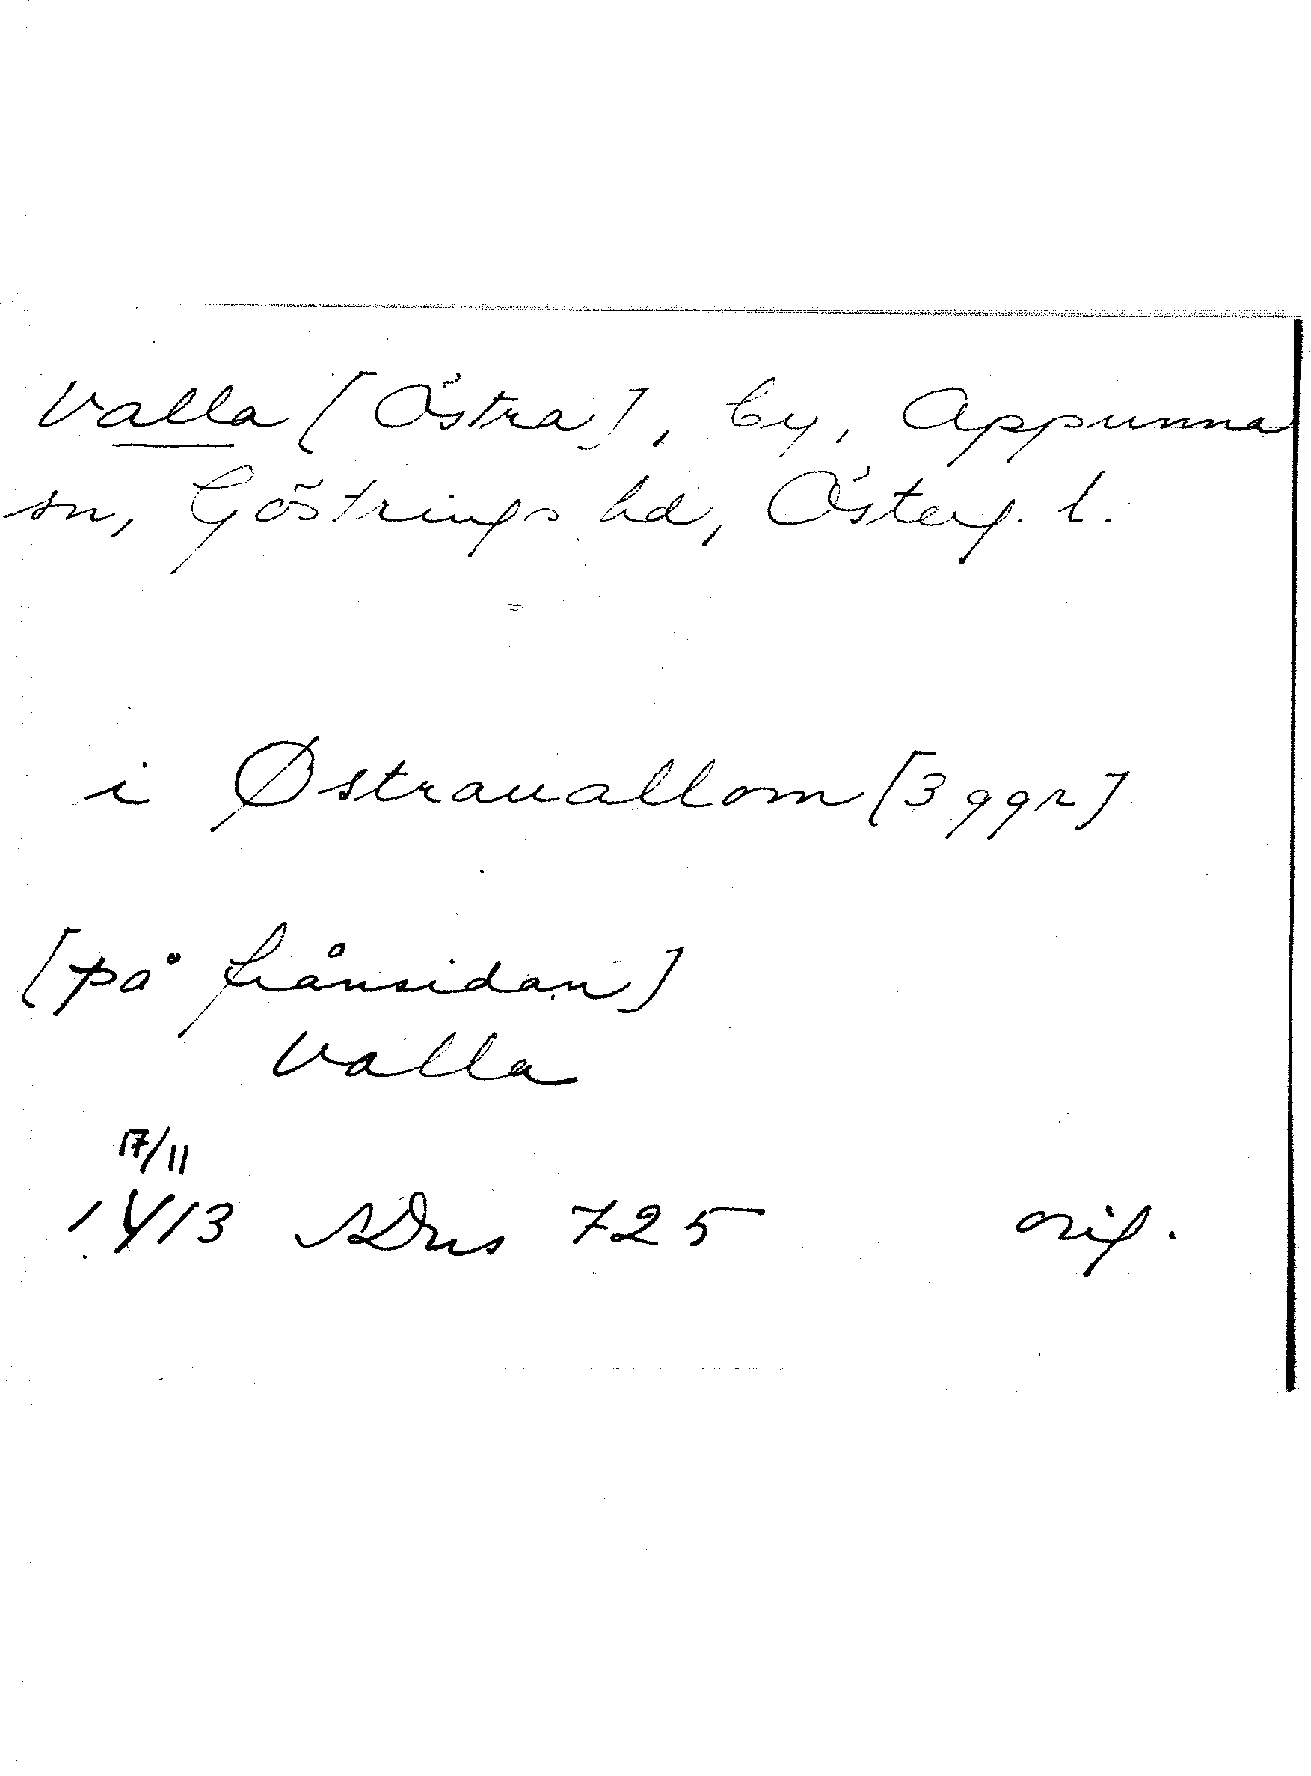 Valla [Östra], by, Appunna
sn, Göstrings hd, Österg. l.
i Østrauallom [3 ggr]
[på frånsidan]
Valla
17/11
1413 SDns 725 orig.